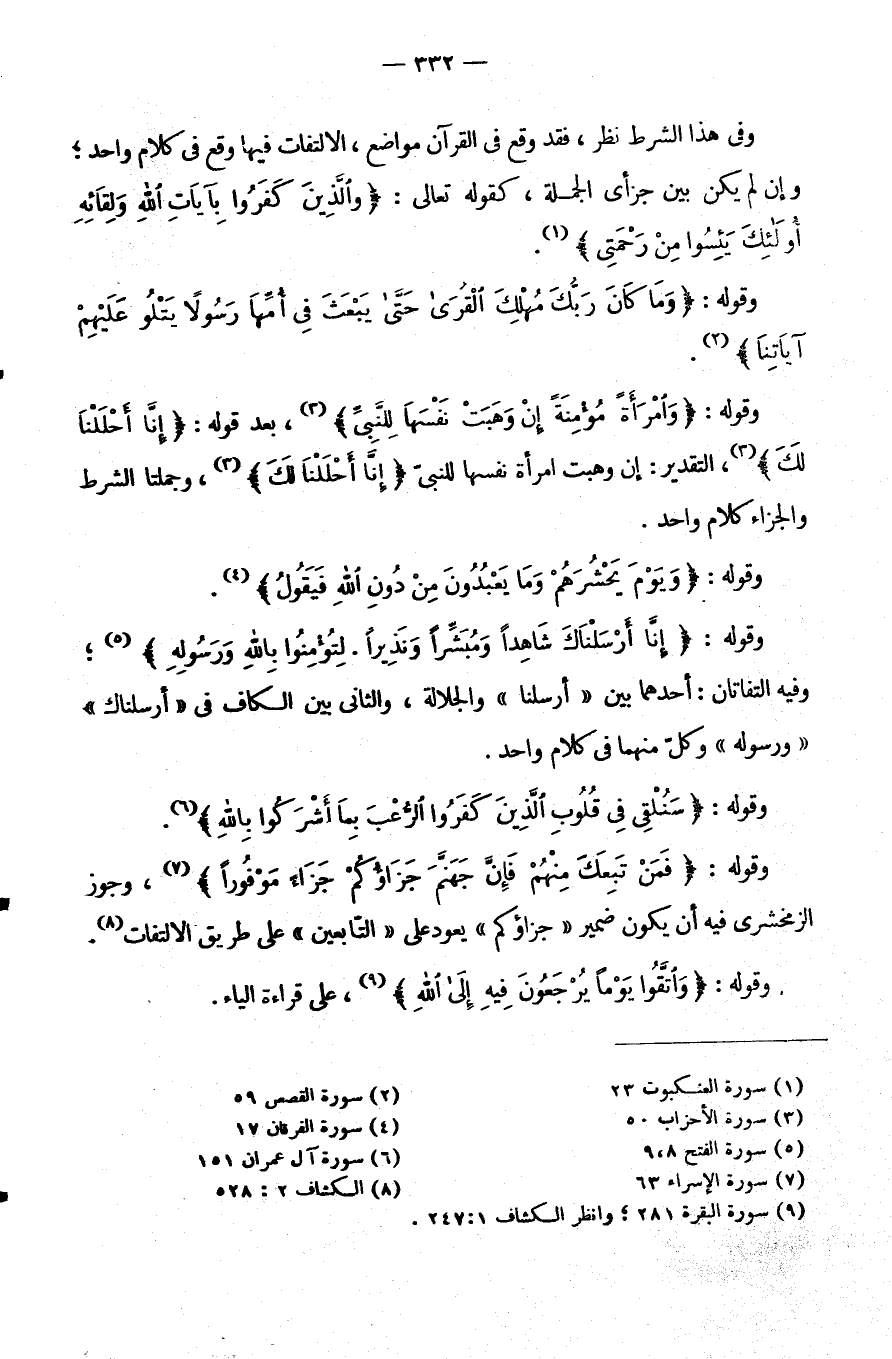 — ٣٣٢ —
وفى هذا الشرط نظر ، فقد وقع فى القرآن مواضع ، الالتفات فيها وقع فى كلام واحد ؛
وإن لم يكن بين جزأى الجملة ، كقوله تعالى : ﴿ وَٱلَّذِينَ كَفَرُوا بِآيَاتِ ٱللهِ وَلِقَائِهِ
أُولَٰئِكَ يَئِسُوا مِنْ رَحْمَتِى ﴾ (١).
وقوله : ﴿ وَمَا كَانَ رَبُّكَ مُهْلِكَ ٱلْقُرَىٰ حَتَّىٰ يَبْعَثَ فِى أُمِّهَا رَسُولًا يَتْلُو عَلَيْهِمْ
آيَاتِنَا ﴾ (٢) .
وقوله : ﴿ وَٱمْرَأَةً مُؤْمِنَةً إِنْ وَهَبَتْ نَفْسَهَا لِلنَّبِىِّ ﴾ (٣) ، بعد قوله : ﴿ إِنَّا أَحْلَلْنَا
لَكَ ﴾(٣)، التقدير : إن وهبت امرأة نفسها للنبىّ ﴿ إِنَّا أَحْلَلْنَا لَكَ ﴾ (٣) ، وجملتا الشرط
والجزاء كلام واحد .
وقوله : ﴿ وَيَوْمَ يَحْشُرُهُمْ وَمَا يَعْبُدُونَ مِنْ دُونِ ٱللهِ فَيَقُولُ ﴾ (٤) .
وقوله : ﴿ إِنَّا أَرْسَلْنَاكَ شَاهِداً وَمُبَشِّراً وَنَذِيراً . لِتُؤْمِنُوا بِاللهِ وَرَسُولِهِ ﴾ (٥) ؛
وفيه التفاتان : أحدهما بين « أرسلنا » والجلالة ، والثانى بين الكاف فى « أرسلناك »
« ورسوله » وكلّ منهما فى كلام واحد .
وقوله : ﴿ سَنُلْقِى فِى قُلُوبِ ٱلَّذِينَ كَفَرُوا ٱلرُّعْبَ بِمَا أَشْرَكُوا بِاللهِ ﴾(٦).
وقوله : ﴿ فَمَنْ تَبِعَكَ مِنْهُمْ فَإِنَّ جَهَنَّمَ جَزَاؤُكُمْ جَزَاءً مَوْفُوراً ﴾ (٧) ، وجوز
الزمخشرى فيه أن يكون ضمير « جزاؤكم » يعود على « التابعين » على طريق الالتفات(٨).
وقوله : ﴿ وَٱتَّقُوا يَوْماً يُرْجَعُونَ فِيهِ إِلَىٰ ٱللهِ ﴾ (٩) ، على قراءة الياء .
(١) سورة العنكبوت ٢٣
(٢) سورة القصص ٥٩
(٣) سورة الأحزاب ٥٠
(٤) سورة الفرقان ١٧
(٥) سورة الفتح ٨،٩
(٦) سورة آل عمران ١٥١
(٧) سورة الإسراء ٦٣
(٨) الكشاف ٢ : ٥٢٨
(٩) سورة البقرة ٢٨١ ؛ وانظر الكشاف ١:٢٤٧ .